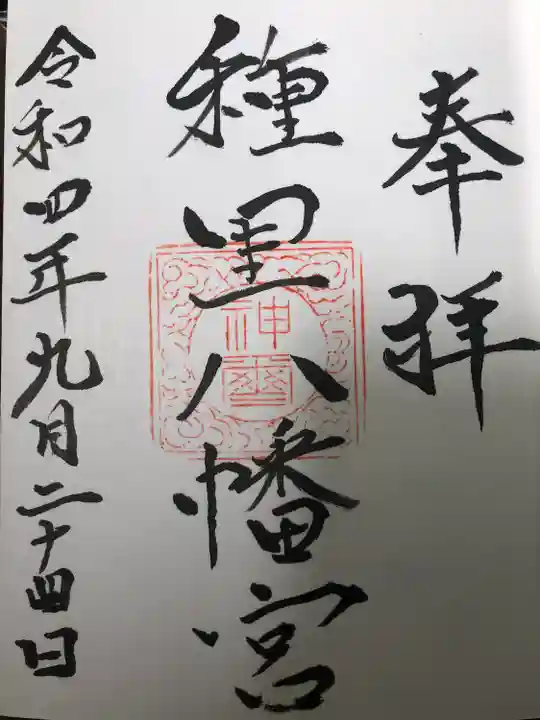 奉拝
種里八幡宮
令和四年九月二十四日